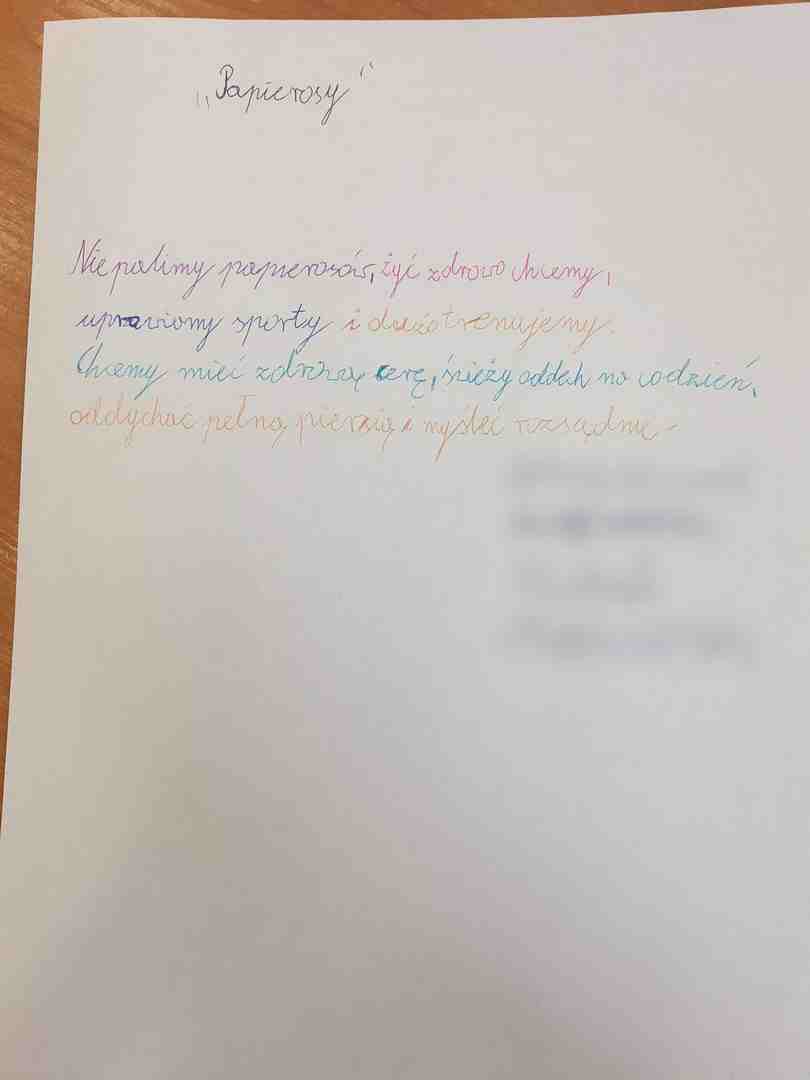 „Papierosy”
Nie palimy papierosów, żyć zdrowo chcemy,
uprawiamy sporty i dużo trenujemy.
Chcemy mieć zdrową cerę, świeży oddech na codzień,
oddychać pełną piersią i myśleć rozsądnie.